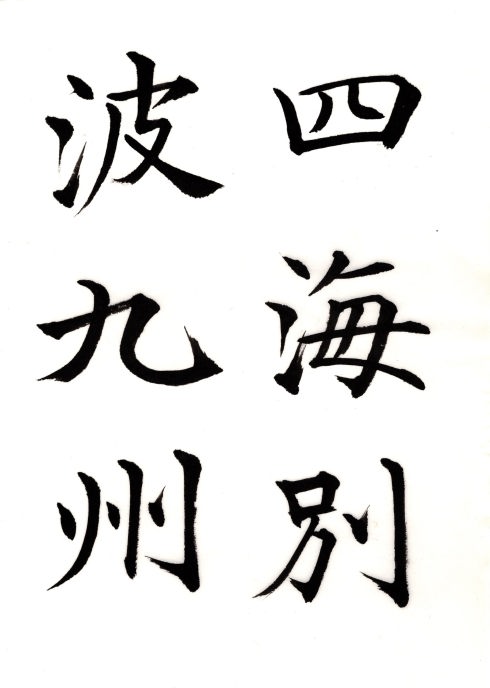 四海別
波九州